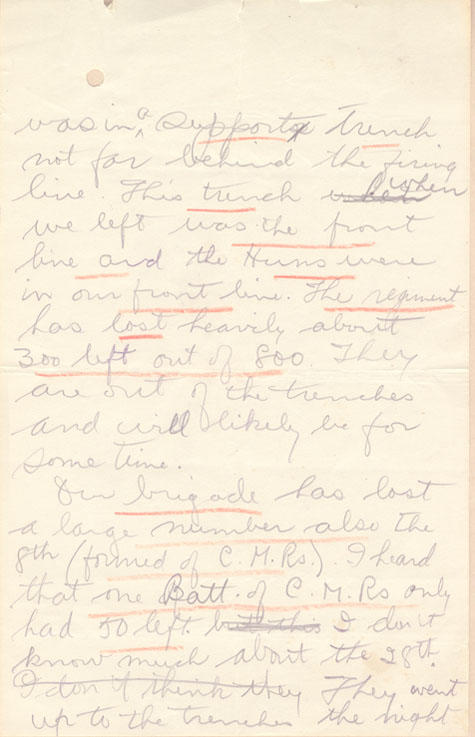 was in a support trench
not far behind the firing
line. This trench when when
we left was the front
line and the Huns were
in our front line. The regiment
has lost heavily about
300 left out of 800. They
are out of the trenches
and will likely be for
some time.
Our brigade has lost
a large number also the
8th (formed of C. M. Rs.). I heard
that one Batt. of C. M. Rs only
had 50 left but this I don't
know much about the 28th.
I don't think they They went
up to the trenches the night